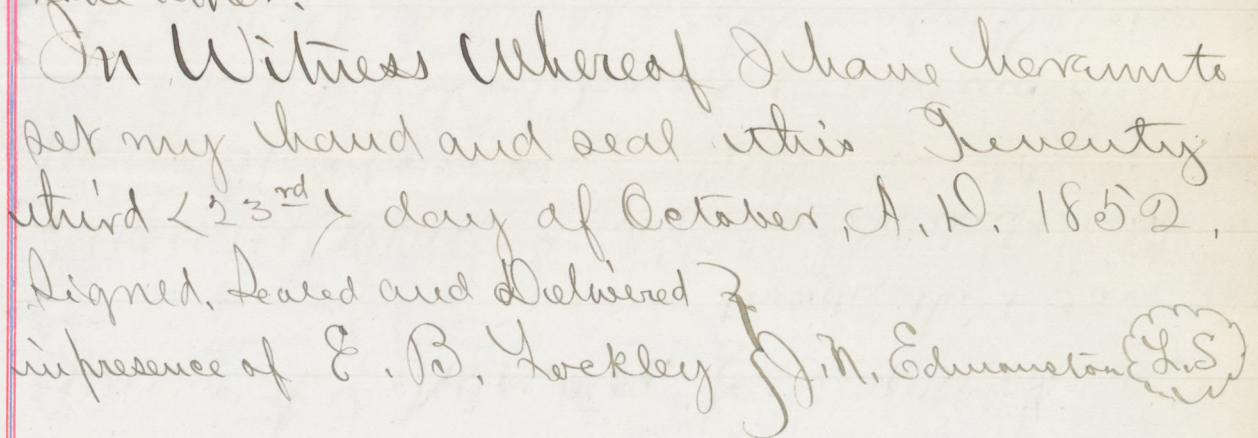 In Witness Whereof I have hereunto
set my hand and seal this Twenty
third (23rd) day of October, A.D. 1852.
Signed, Sealed and Delivered }
in presence of E. B. Lockley } J. N. Edmonston L.S